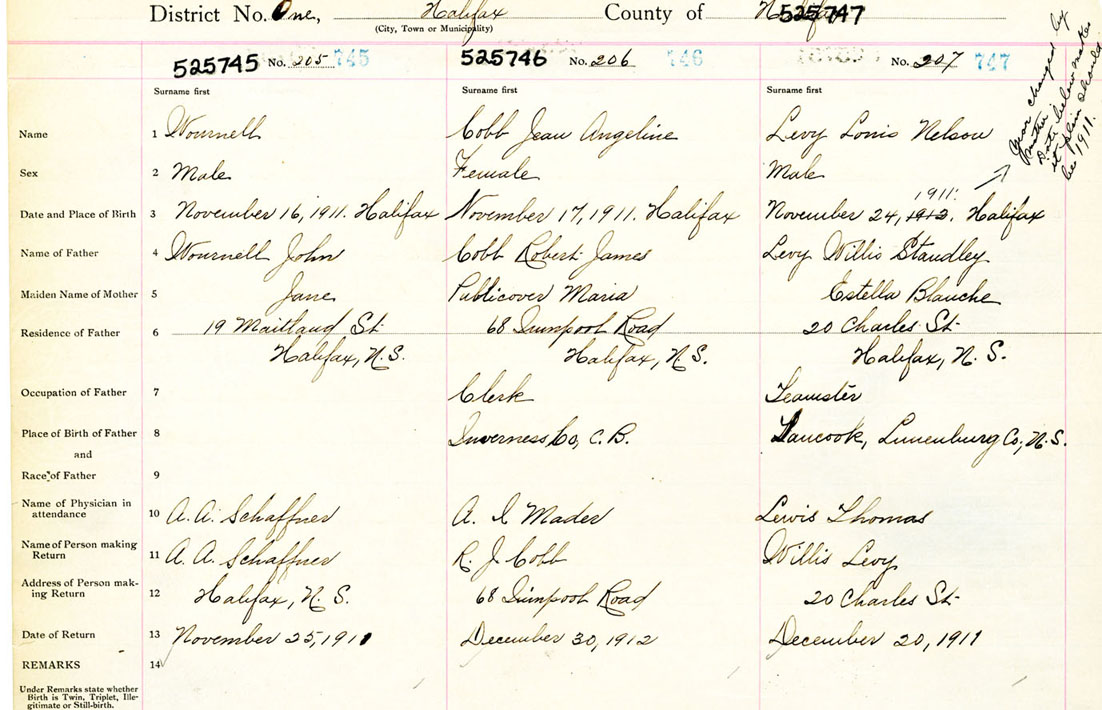 District No. One, Halifax County of Halifax 525747
(City, Town or Municipality)
525745 No. 205 745 525746 No. 206 746 No. 207 747
Surname first Surname first Surname first
Name 1 Wournell Cobb Jean Angeline Levy Louis Nelson
Sex 2 Male Female Male
1911.
Date and Place of Birth 3 November 16, 1911. Halifax November 17, 1911. Halifax November 24, 1912. Halifax
Name of Father 4 Wournell John Cobb Robert James Levy Willis Standley
Maiden Name of Mother 5 Jane Publicover Maria Estella Blanche
Residence of Father 6 19 Maitland St. 68 Quinpool Road 20 Charles St.
Halifax, N.S. Halifax, N.S. Halifax, N.S.
Occupation of Father 7 Clerk Teamster
Place of Birth of Father 8 Inverness Co, C.B. Tancook, Lunenburg Co, N.S.
and
Race of Father 9
Name of Physician in
attendance 10 A. A. Schaffner A. I Mader Lewis Thomas
Name of Person making
Return 11 A. A. Schaffner R. J. Cobb Willis Levy
Address of Person mak-
ing Return 12 Halifax, N.S. 68 Quinpool Road 20 Charles St.
Date of Return 13 November 25, 1911 December 30, 1912 December 20, 1911
REMARKS 14
Under Remarks state whether
Birth is Twin, Triplet, Ille-
gitimate or Still-birth.
year changed by
Date below makes
it plain should
be 1911.